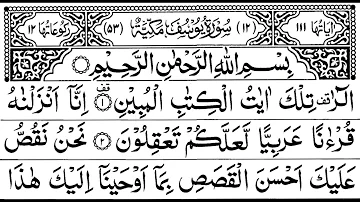 اٰیَاتُهَا ۱۱۱ (۱۲) سُوْرَةُ یُوْسُفَ مَكِّیَّةٌ (۵۳) رُكُوْعَاتُهَا ۱۲
بِسْمِ اللّٰهِ الرَّحْمٰنِ الرَّحِیْمِ
الٓرٰ ۫ تِلْكَ اٰیٰتُ الْكِتٰبِ الْمُبِیْنِ ۫﴿۱﴾ اِنَّاۤ اَنْزَلْنٰهُ
قُرْءٰنًا عَرَبِیًّا لَّعَلَّكُمْ تَعْقِلُوْنَ ﴿۲﴾ نَحْنُ نَقُصُّ
عَلَیْكَ اَحْسَنَ الْقَصَصِ بِمَاۤ اَوْحَیْنَاۤ اِلَیْكَ هٰذَا